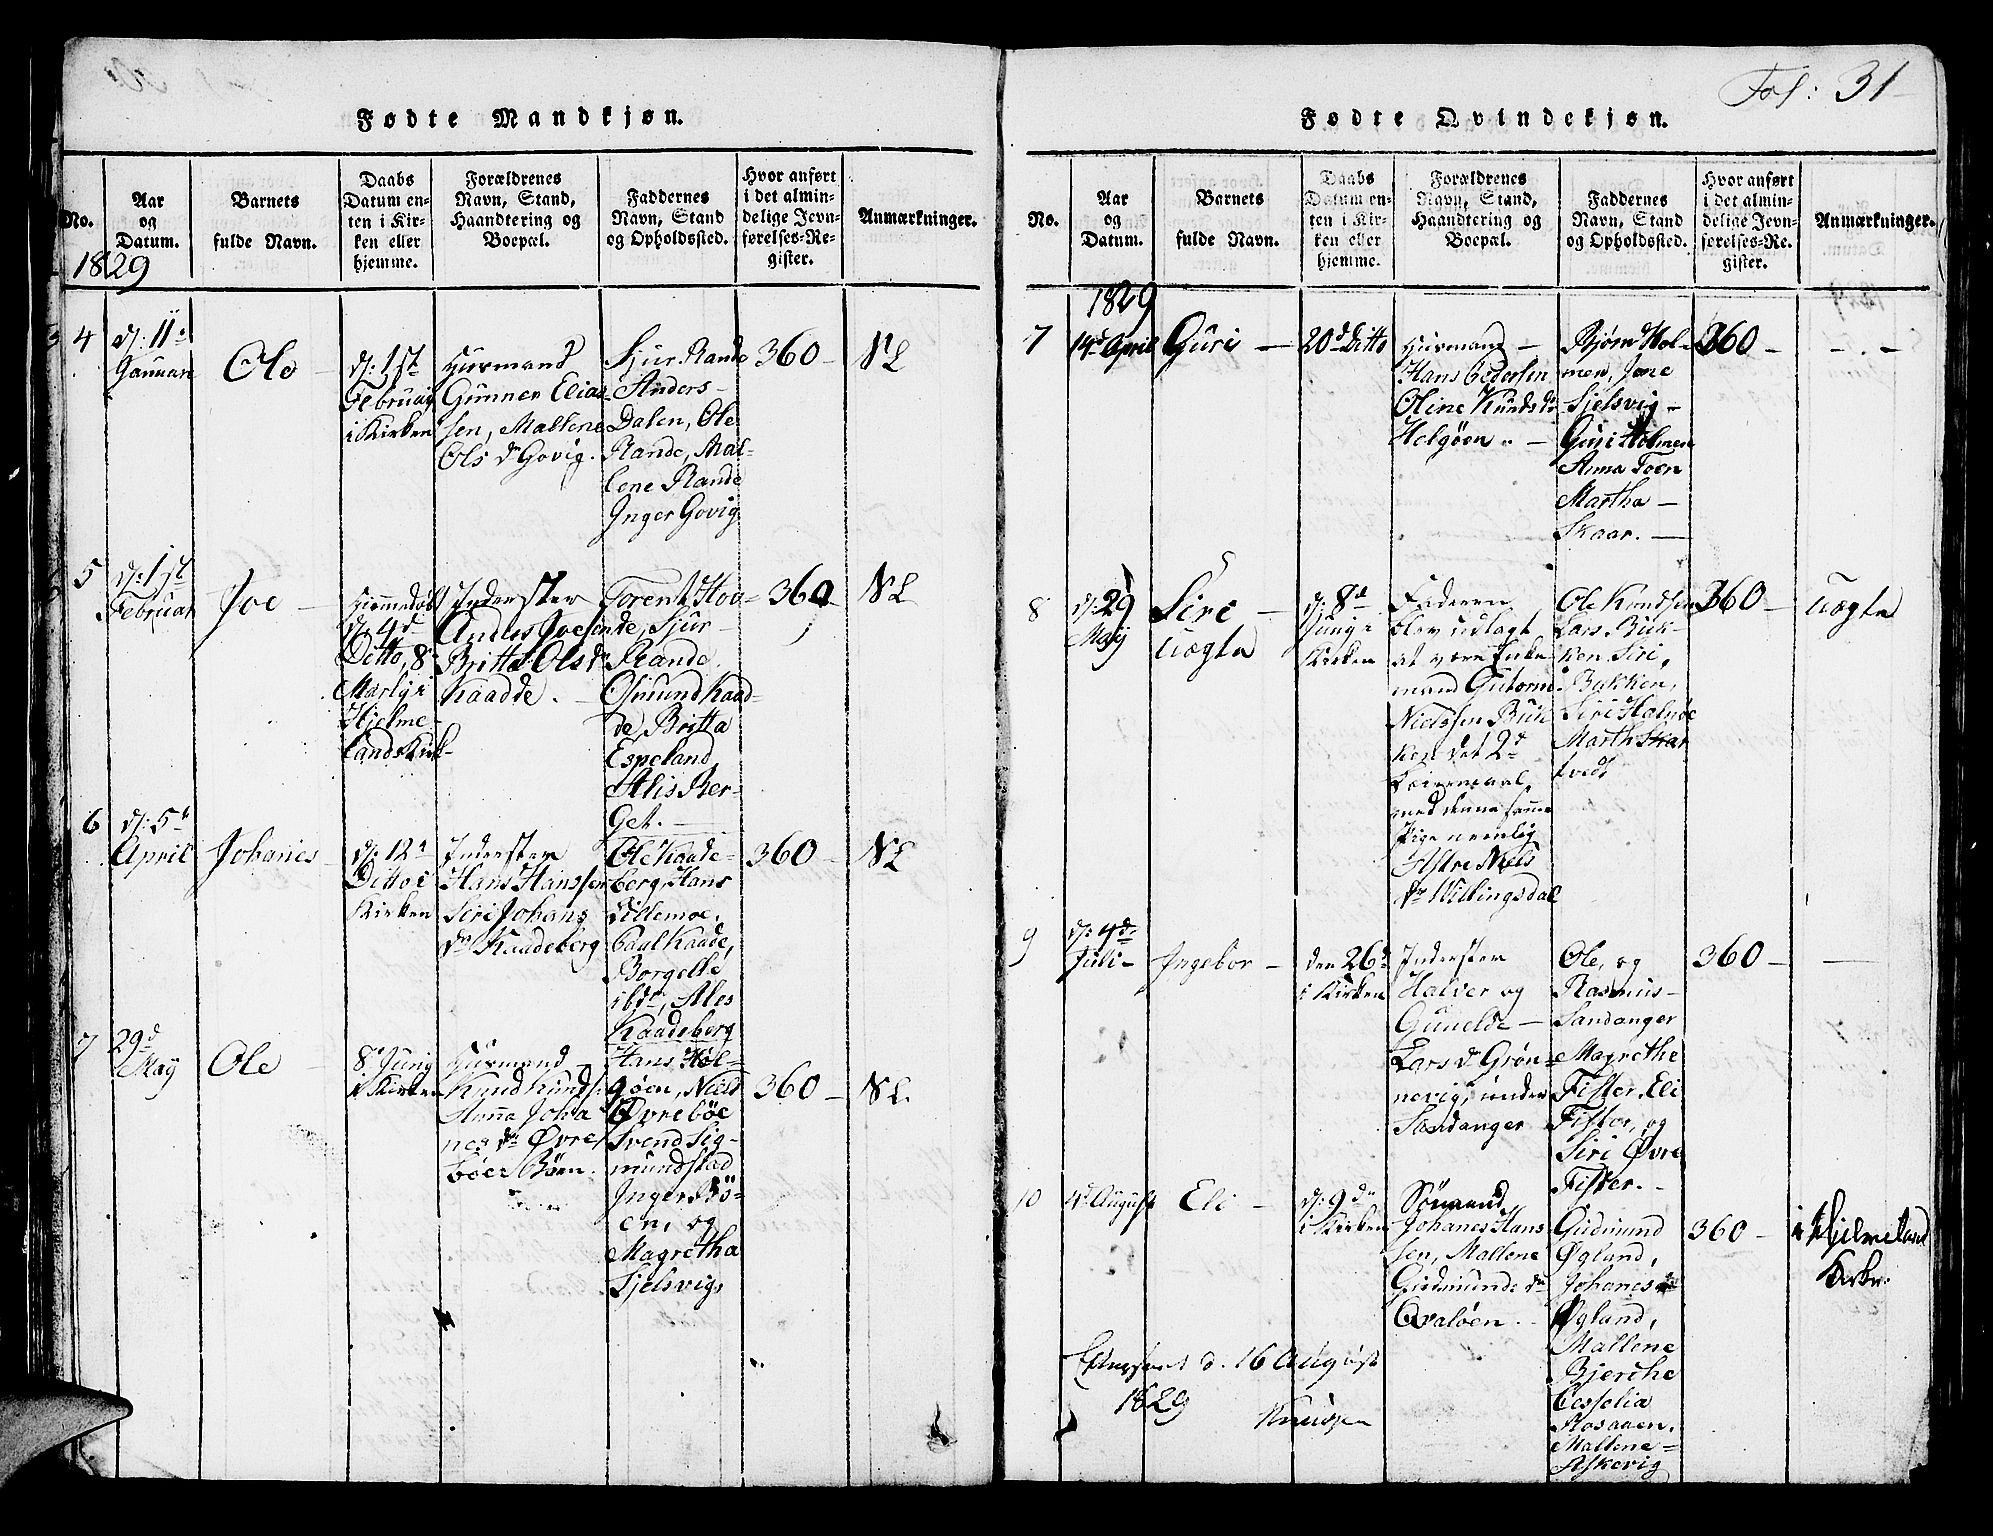 Fol: 31
Fødte Mandkjøn.
No.
Aar
og
Datum.
Barnets
fulde Navn.
Daabs
Datum en-
ten i Kir-
ken eller
hjemme.
Forældrenes
Navn, Stand,
Haandtering og
Boepæl.
Faddernes
Navn, Stand
og Opholdssted.
Hvor anført
i det almin-
delige Jevn-
førelses-Re-
gister.
Anmærkninger.
1829
4
d: 11te
Januari
Ole
d: 1st
Februar
i Kirken
Husmand
Gunner Elias-
sen, Mallene
Ols dr Govig.
Sjur Rande
Anders
Dalen, Ole
Rande, Mal-
lene Rande
Inger Govig
360
NL
5
d: 1st
Februar
Joe
Hiemmedøbt
d: 4d
Ditto, 8
Martz i
Hjelme-
lands Kirk-
Inderster
Andles Joesen
Britta Olsdr
Kaadde.
Torent Hov-
de, Sjur
Rande
Osmund Kaad-
de, Britta
Espeland
Alis Ber-
get.
360
NL
6
d: 5t
April
Johanes
d: 12t
Ditto i
Kirken
Inderster
Hans Hanssen
Siri Johans
dr Kaadeberg
Ole Kaade-
berg, Hans
Lillemoe,
Paul Kaade,
Borgelle
ibdn, Ales
Kaadeberg
360
NL
7
29d
May
Ole
8 Junij
i Kirken
Husmand
Knud Knuds:
Hanna Joha
nes dr Øvre
bøe Bøen
Hans Hel-
gøen, Niels
Øvrebøe
Svend Sig-
mundstad
Inger Bø-
en, og
Magretha
Sjelsvig,
360
NL.
Fødte Qvindekjøn.
No.
Aar
og
Datum.
Barnets
fulde Navn.
Daabs
Datum en-
ten i Kir-
ken eller
hjemme.
Forældrenes
Navn, Stand,
Haandtering og
Boepæl.
Faddernes
Navn, Stand
og Opholdssted.
Hvor anført
i det almin-
delige Jevn-
førelses-Re-
gister.
Anmærkninger.
1829
7
14d April
Guri
20d Ditto
Husmand
Hans Pedersen
Oline Knuds dr
Helgøen
Bjørn Hol-
men, Jone
Sjelsvig
Guri Holmen
Anna Toen
Martha
Skaar.
360
8
d: 29
May
Siri
Uægta
d: 8d
Junij i
Kirken
Faderen
blev udlagt
at være Enke
mand Gutorm
Nielssen Buk
ken det 2d
Leiermaal
med denne samme
Pige nemlig
Astre Niels
dr Villingsdal
Ole Knudsen
Lars Buk-
ken Siri,
Bukken,
Siri Halnøe
Marth Skar
tvedt
360
Uægta
9
d: 4d
Juli
Ingebor
den 26
i Kirken
Inderster
Halver og
Gunelde
Lars dr Grøn-
nevig, under
Sandanger
Ole, og
Rasmus
Sandanger
Magrethe
Fister, Eli
Fister, og
Siri Øvre
Fister.
360
10
4d August
Eli
d: 9de
i Kirken
Sømand,
Johanes Hans
sen, Mallene
Gudmunds dr
Qvaløen.
Gudmund
Øgland,
Johanes
Øgland,
Mallene
Bjerche
Cesselia
Aosaaen,
Mallene
Askevig
360
i Hjelmeland
Kirke.
d. 16 August
1829
Knudzen